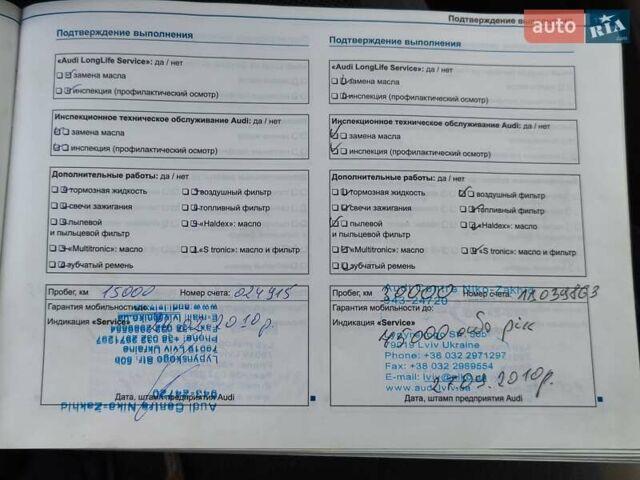 Подтверждение выполнения
auto RIA
.com
Подтверждение выполнения
«Audi LongLife Service»: да / нет
замена масла
инспекция (профилактический осмотр)
Инспекционное техническое обслуживание Audi: да / нет
замена масла
инспекция (профилактический осмотр)
Дополнительные работы: да / нет
тормозная жидкость
воздушный фильтр
свечи зажигания
топливный фильтр
пылевой
и пыльцевой фильтр
«Haldex»: масло
«Multitronic»: масло
«S tronic»: масло и фильтр
зубчатый ремень
Пробег, км 15000 Номер счета: 024915
Гарантия мобильности до:
Индикация «Service»
2010р.
www.audi.lviv.ua
Fax: +38 032 2989554
Phone: +38 032 2971297
79019 Lviv Ukraine
Lypynskogo Str. 50b
943-24720
Audi Centre Niko-Zakhid
Дата, штамп предприятия Audi
Подтверждение выполнения
«Audi LongLife Service»: да / нет
замена масла
инспекция (профилактический осмотр)
Инспекционное техническое обслуживание Audi: да / нет
замена масла
инспекция (профилактический осмотр)
Дополнительные работы: да / нет
тормозная жидкость
воздушный фильтр
свечи зажигания
топливный фильтр
пылевой
и пыльцевой фильтр
«Haldex»: масло
«Multitronic»: масло
«S tronic»: масло и фильтр
зубчатый ремень
Audi Centre Niko-Zakhid
Пробег, км 30000 Номер счета:
943-24720
Гарантия мобильности до:
Индикация «Service» 45000 або рік
Lypynskogo Str. 50b
79019 Lviv Ukraine
Phone: +38 032 2971297
Fax: +38 032 2989554
E-mail:
www.audi.lviv.ua
.2010р.
Дата, штамп предприятия Audi